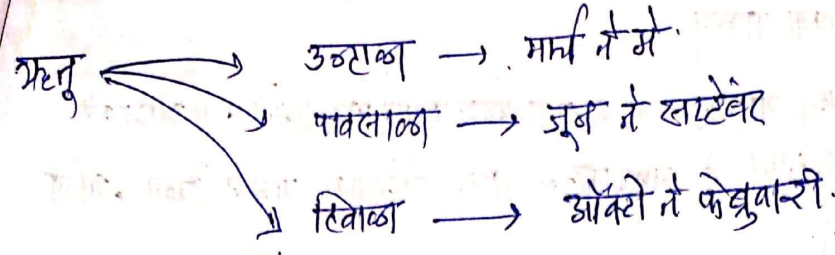 ऋतू
उन्हाळा → मार्च ते मे.
पावसाळा → जून ते सप्टेंबर
हिवाळा → ऑक्टो ते फेब्रुवारी.